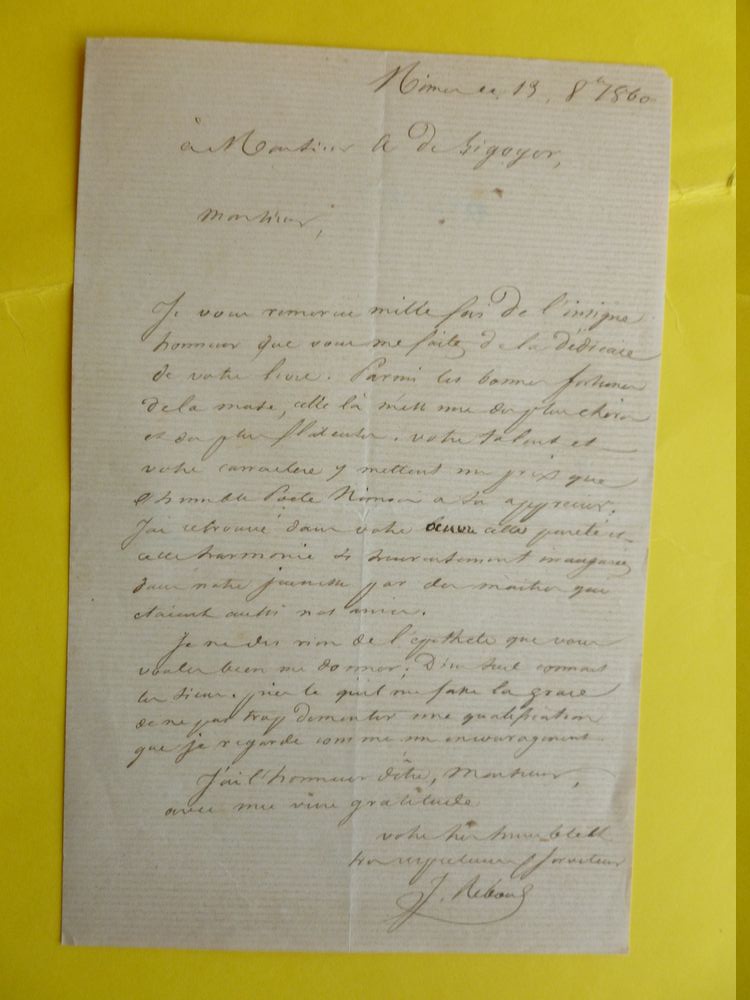 Nîmes le 13. 8bre 1860
à Monsieur A de Sigoyer,
Monsieur,
Je vous remercie mille fois de l'insigne
honneur que vous me faites de la dédicace
de votre livre. Parmi les bonnes fortunes
de la muse, celle là m'est une des plus chères
et des plus flatteuses. votre talent et
votre caractère y mettent un prix que
l'humble Poète Nimois a su apprécier.
J'ai retrouvé dans votre œuvre cette pureté et
cette harmonie si heureusement inaugurées
dans notre jeunesse par des maîtres qui
étaient aussi nos amis.
Je ne dis rien de l'épithète que vous
voulez bien me donner; Dieu seul connait
les siens. priez le qu'il me fasse la grace
de ne pas trop démentir une qualification
que je regarde comme un encouragement.
J'ai l'honneur d'être, Monsieur,
avec une vive gratitude
votre très humble et
très respectueux serviteur
J. Reboul